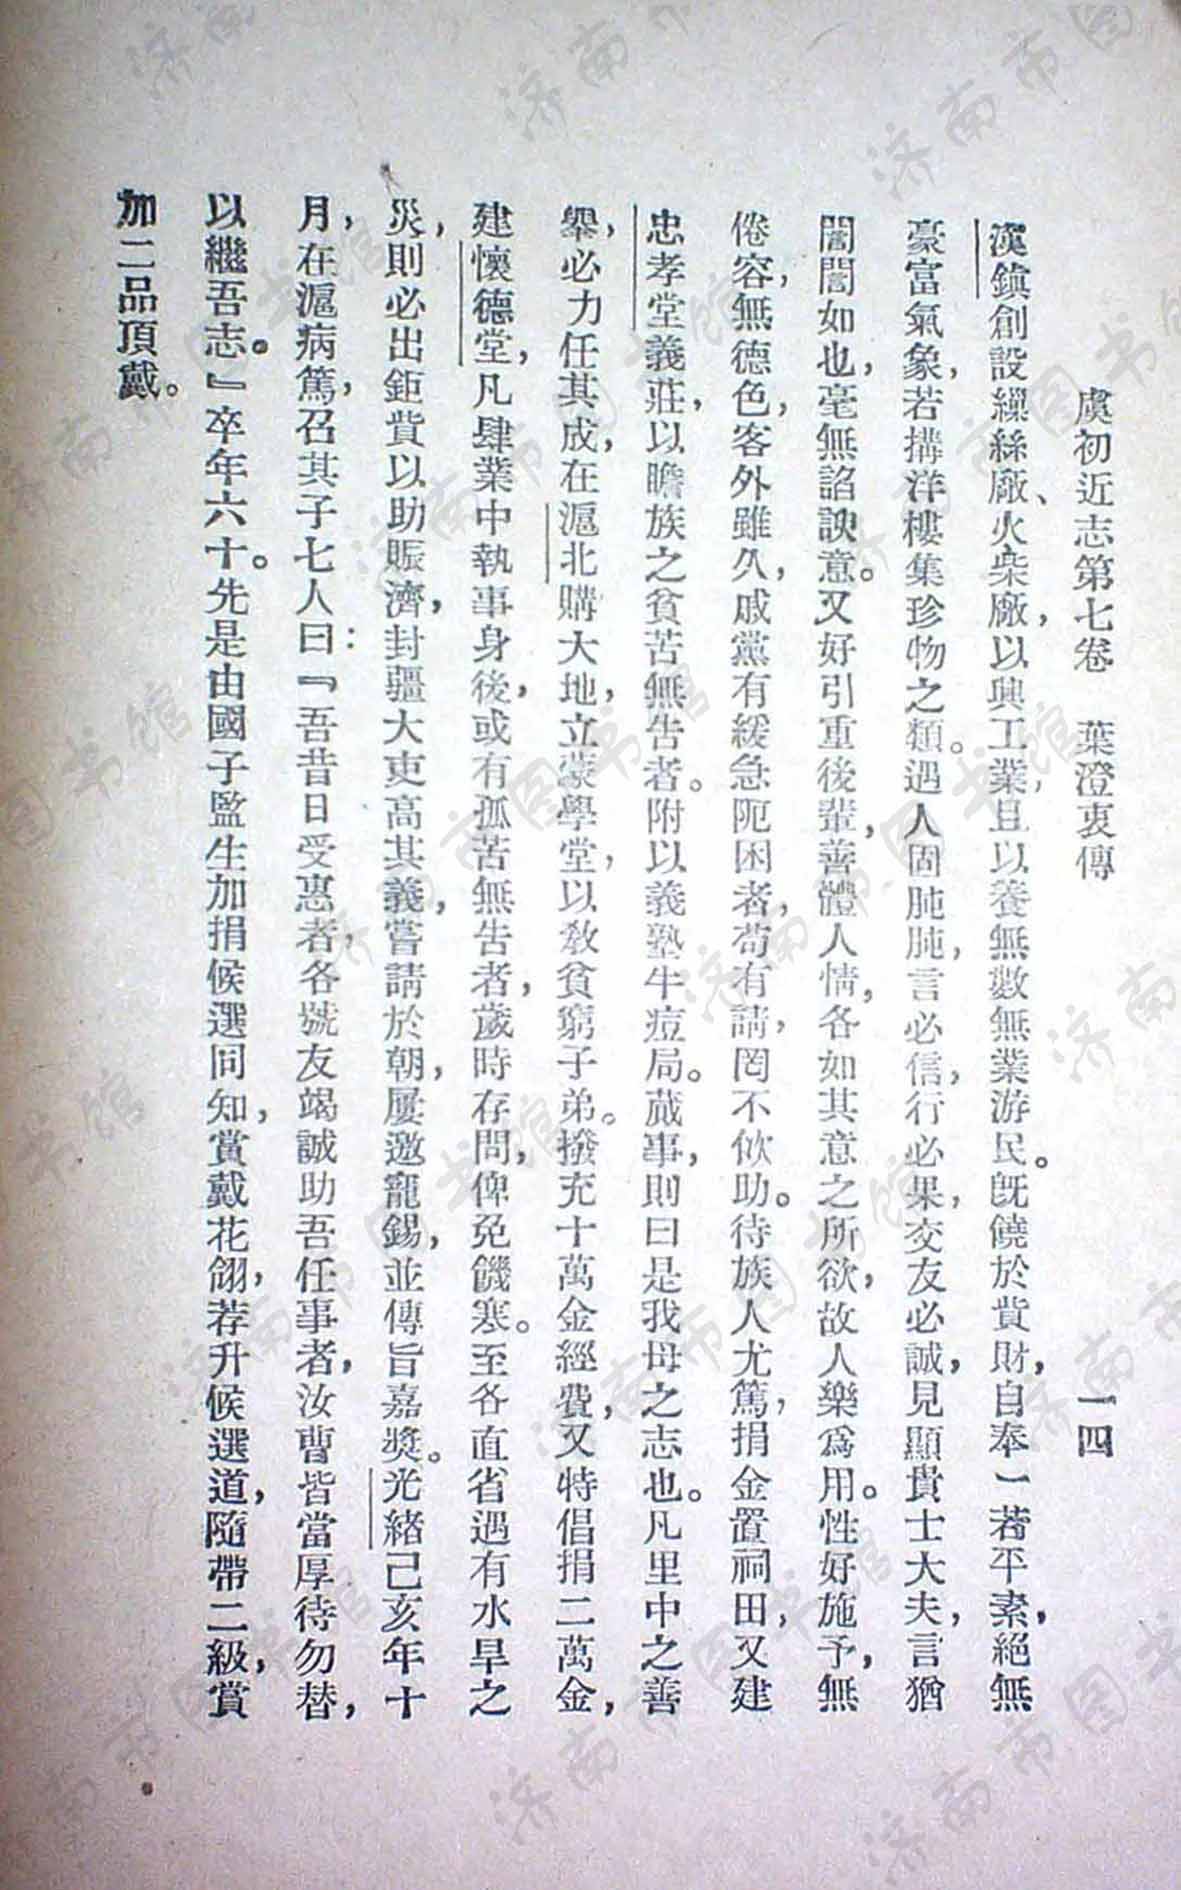 虞初近志第七卷　葉澄衷傳　一四
漢鎮創設繅絲廠、火柴廠，以興工業，且以養無數無業游民。既饒於貲財，自奉一若平素，絕無
豪富氣象，若搆洋樓集珍物之類。遇人固肫肫，言必信，行必果，交友必誠，見顯貴士大夫，言猶
誾誾如也，毫無諂諛意。又好引重後輩，善體人情，各如其意之所欲，故人樂爲用。性好施予，無
倦容，無德色，客外雖久，戚黨有緩急阨困者，苟有請，罔不佽助。待族人尤篤，捐金置祠田，又建
忠孝堂義莊，以贍族之貧苦無告者。附以義塾牛痘局。蕆事，則曰是我母之志也。凡里中之善
舉，必力任其成，在滬北購大地，立蒙學堂，以敎貧窮子弟。撥充十萬金經費，又特倡捐二萬金，
建懷德堂，凡肆業中執事身後，或有孤苦無告者，歲時存問，俾免饑寒。至各直省遇有水旱之
災，則必出鉅貲以助賑濟，封疆大吏高其義，嘗請於朝，屢邀寵錫，並傳旨嘉獎。光緒己亥年十
月，在滬病篤，召其子七人曰：『吾昔日受惠者，各號友竭誠助吾任事者，汝曹皆當厚待勿替，
以繼吾志。』卒年六十。先是由國子監生加捐候選同知，賞戴花翎，荐升候選道，隨帶二級，賞
加二品頂戴。
济南市图书馆